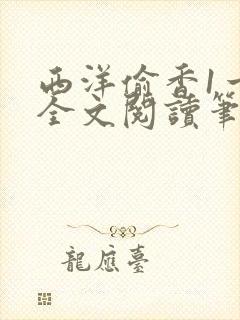 西洋偷香1一
全文閱讀筆
龍應臺